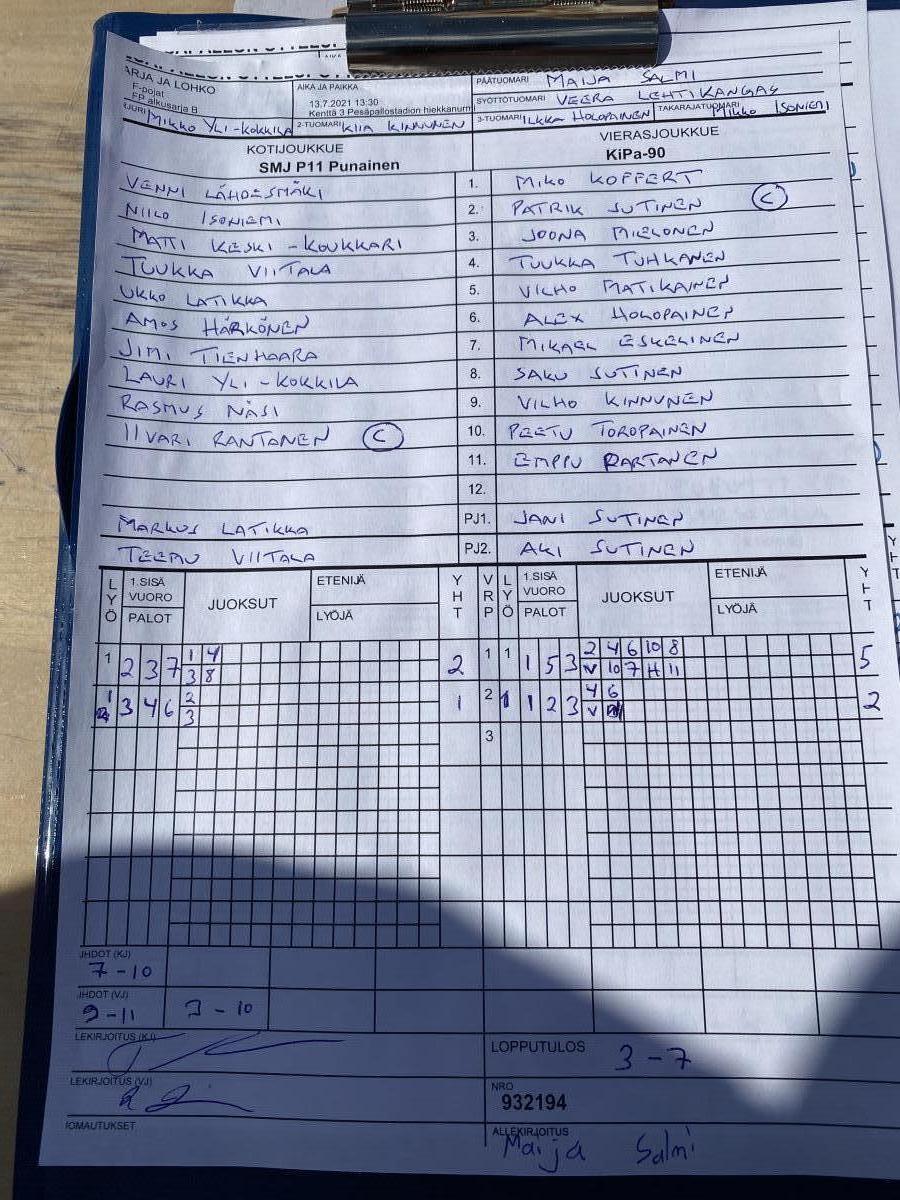 ARJA JA LOHKO
F-pojat
FP alkusarja B
AIKA JA PAIKKA
13.7.2021 13:30
Kenttä 3 Pesäpallostadion hiekkanurm
PÄÄTUOMARI MAIJA SALMI
SYÖTTÖTUOMARI VEERA LEHTIKANGAS
MIKKO YLI-KOKKILA
2-TUOMARI KIIA KINNUNEN
3-TUOMARI ILKKA HOLOPAINEN
TAKARAJATUOMARI MIKKO ISONIEMI
KOTIJOUKKUE
SMJ P11 Punainen
VIERASJOUKKUE
KiPa-90
VENNI LÄHDESMÄKI 1. MIKO KOFFERT
NIILO ISONIEMI 2. PATRIK SUTINEN C
MATTI KESKI-KOUKKARI 3. JOONA MIELONEN
TUUKKA VIITALA 4. TUUKKA TUHKANEN
UKKO LATIKKA 5. VILHO MATIKAINEN
AMOS HÄRKÖNEN 6. ALEX HOLOPAINEN
JIMI TIENHAARA 7. MIKAEL ESKELINEN
LAURI YLI-KOKKILA 8. SAKU SUTINEN
RASMUS NÄSI 9. VILHO KINNUNEN
IIVARI RANTANEN C 10. PEETU TOROPAINEN
11. EMPPU PARTANEN
12.
MARKUS LATIKKA PJ1. JANI SUTINEN
TEEMU VIITALA PJ2. AKI SUTINEN
LYÖ 1.SISÄ VUORO PALOT JUOKSUT ETENIJÄ LYÖJÄ YHT VRP LYÖ 1.SISÄ VUORO PALOT JUOKSUT ETENIJÄ LYÖJÄ YHT
1 2 3 7 1 4 2 1 1 1 5 3 2 4 6 10 8 5
3 8 V 10 7 H 11
1 3 4 6 2 1 2 1 1 2 3 4 6 2
3 V
3
JHDOT (KJ)
7-10
JHDOT (VJ)
9-11 3-10
LEKIRJOITUS (KJ)
LOPPUTULOS 3-7
LEKIRJOITUS (VJ)
NRO
932194
IOMAUTUKSET
ALLEKIRJOITUS
Maija Salmi